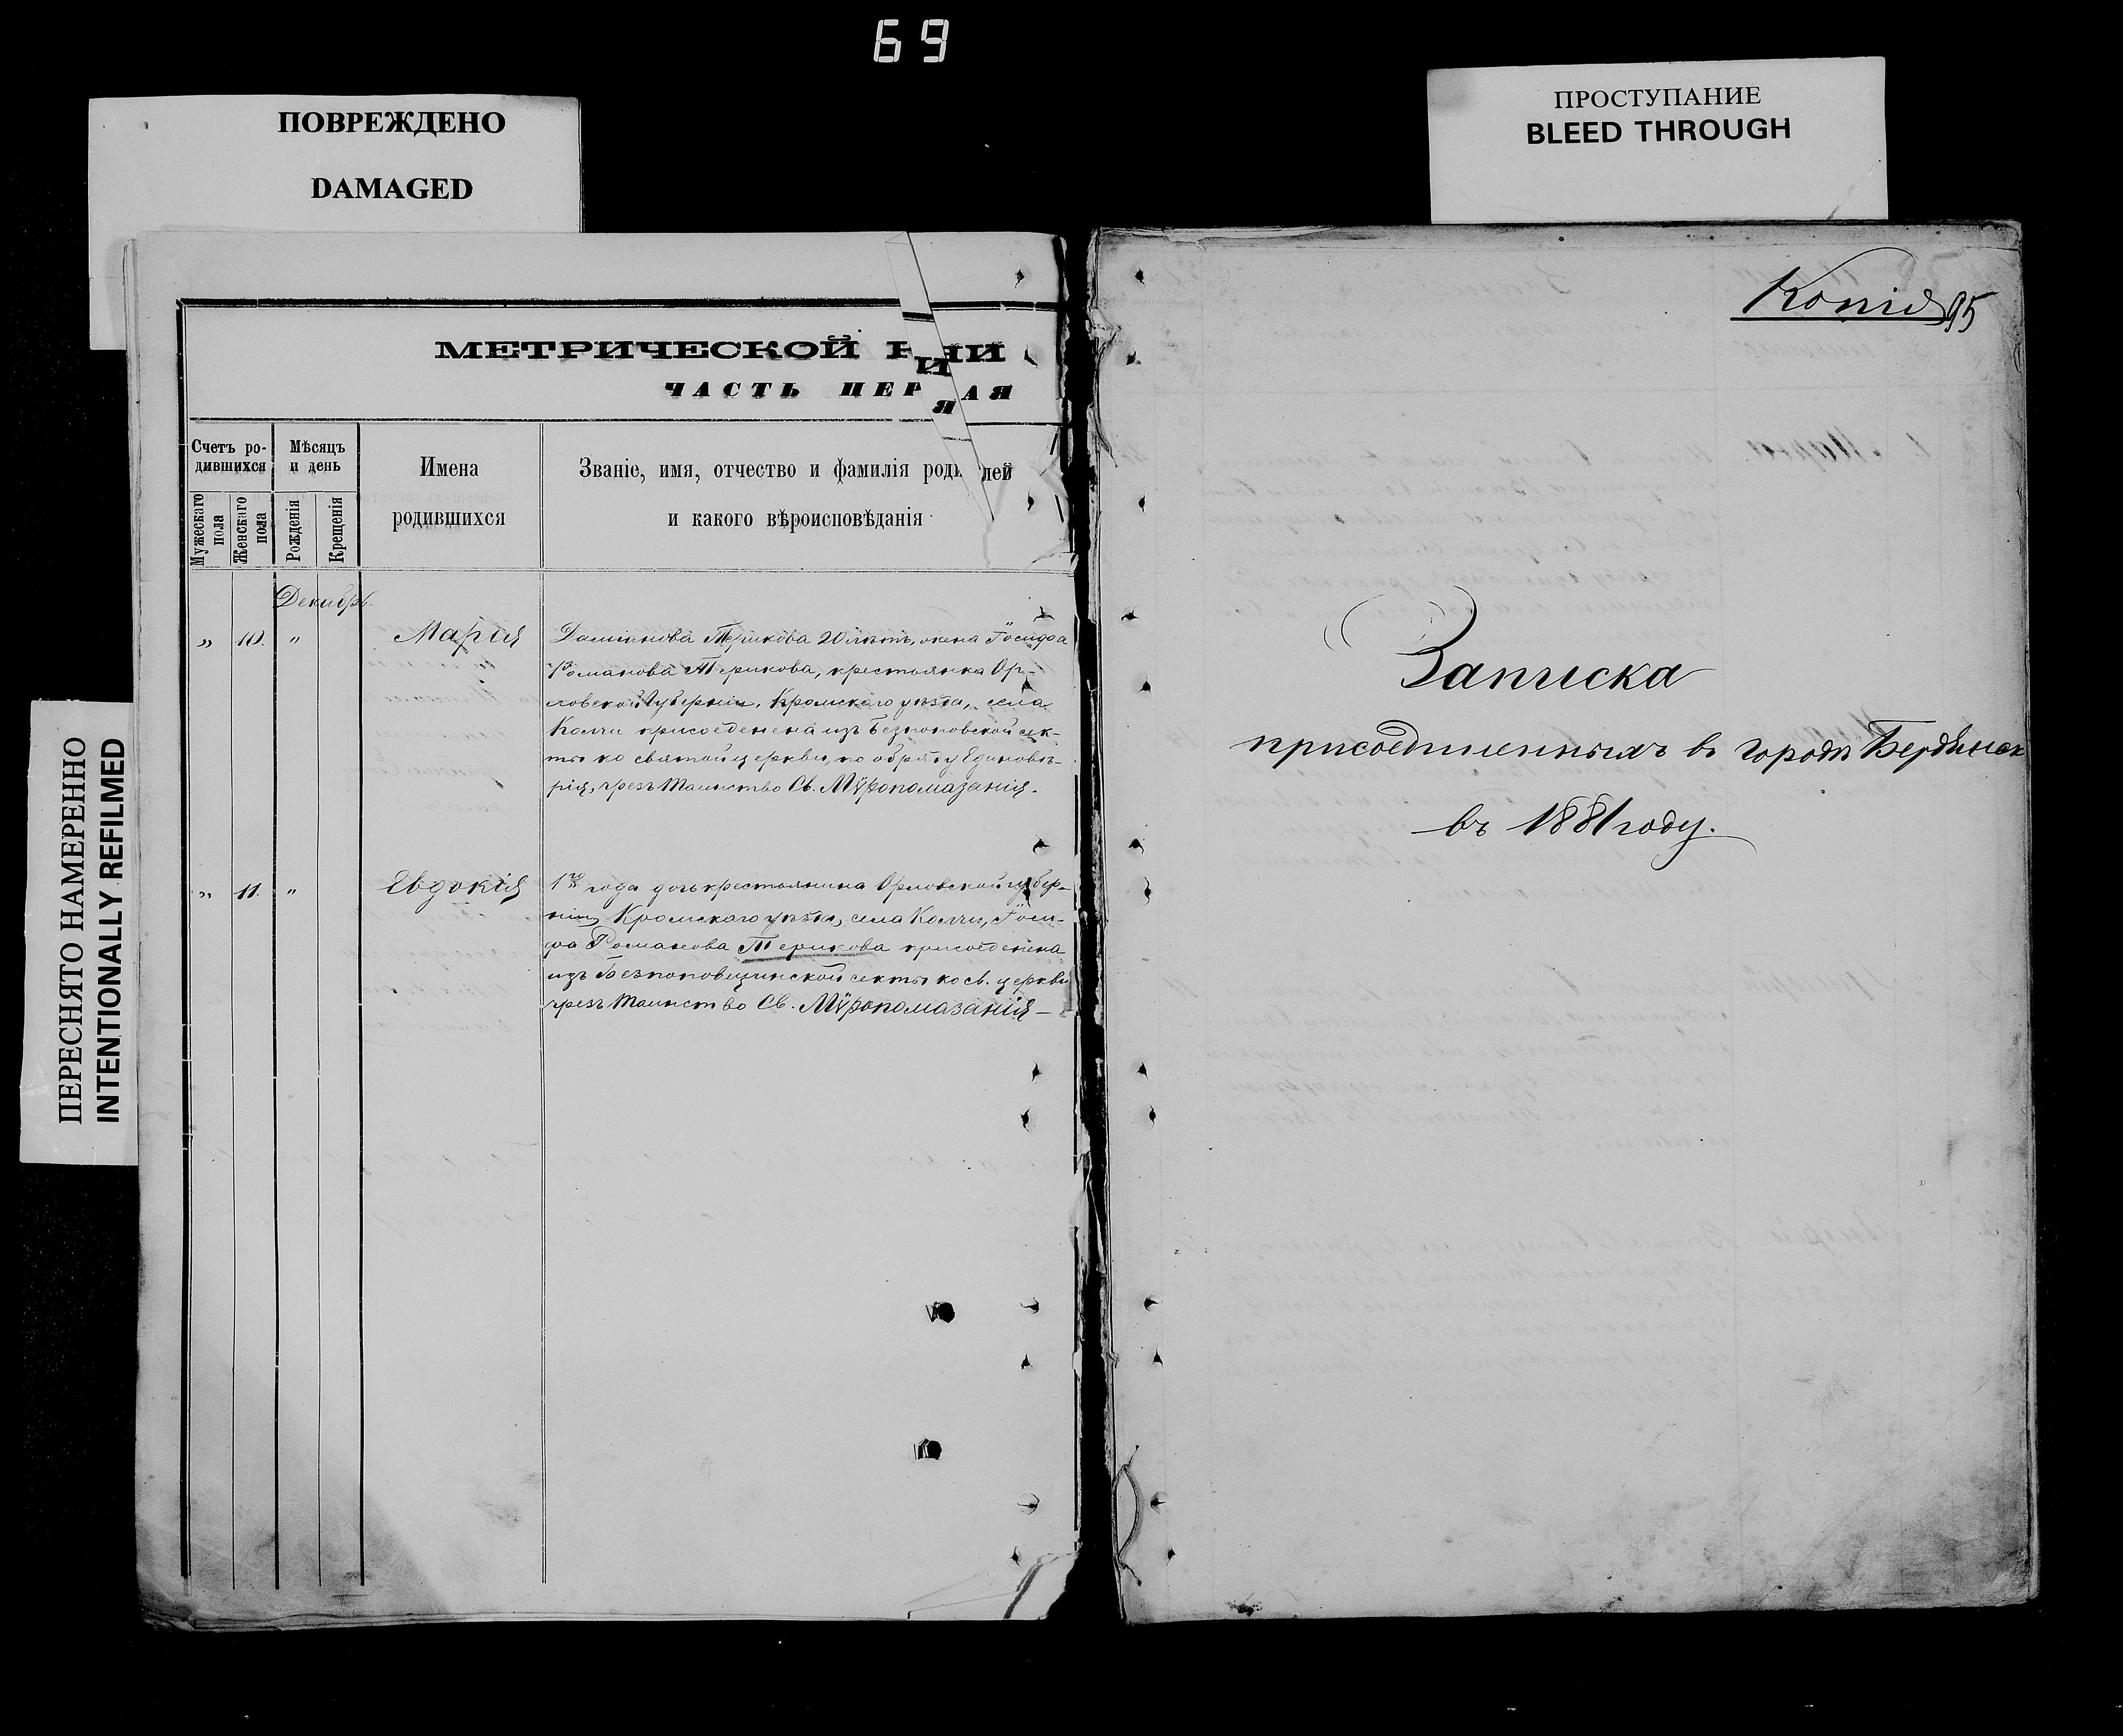 69
ПОВРЕЖДЕНО
DAMAGED
ПРОСТУПАНИЕ
BLEED THROUGH
ПЕРЕСНЯТО НАМЕРЕННО
INTENTIONALLY REFILMED
МЕТРИЧЕСКОЙ
ЧАСТЬ ПЕР АЯ
Счетъ ро-
дившихся
Мѣсяцъ
и день
Имена
родившихся
Званіе, имя, отчество и фамилія роди лей
и какого вѣроисповѣданія
Мужескаго
пола
Женскаго
пола
Рожденія
Крещенія
Декабрь.
„ 10. „ Марія
Даміанова Терикова 20 лѣтъ, жена Іосифа
Романова Терикова, крестьянка Ор-
ловской Губерніи, Кромскаго уѣзда, села
Колчи присоеденена изъ Безпоповской сек-
ты ко святой церкви, по обряду Единовѣ-
рія, чрезъ Таинство Св. Мѵропомазанія.
„ 11. „ Евдокія
1го года дочь крестьянина Орловской губер-
ніи, Кромскаго уѣзда, села Колчи, Іоси-
фа Романова Терикова присоеденена
изъ Безпоповщинской секты ко св. церкви
чрезъ Таинство Св. Мѵропомазанія —
Копія 95
Записка
присоединеннымъ въ городѣ Бердянск
въ 1881 году.